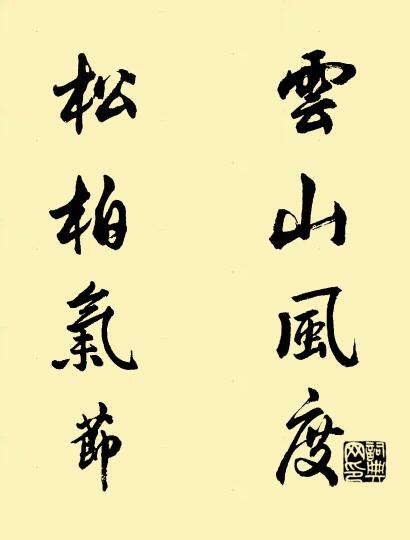 雲山風度
松柏氣節
詞典网印